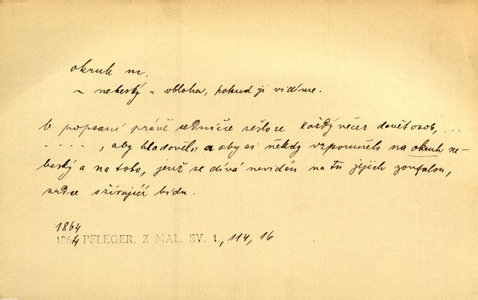 okruh m.
~ nebeský = obloha, pokud ji vidíme.
V popsané právě sedničce sešlo se každý večer devět osob, ...
- - - - -, aby hladovělo a aby si někdy vzpomnělo na okruh ne-
beský a na toho, jenž se dívá neviděn na tu jejich zoufalou,
srdce sžírající bídu.
1864
1864 PFLEGER. Z MAL. SV. 1., 114, 16